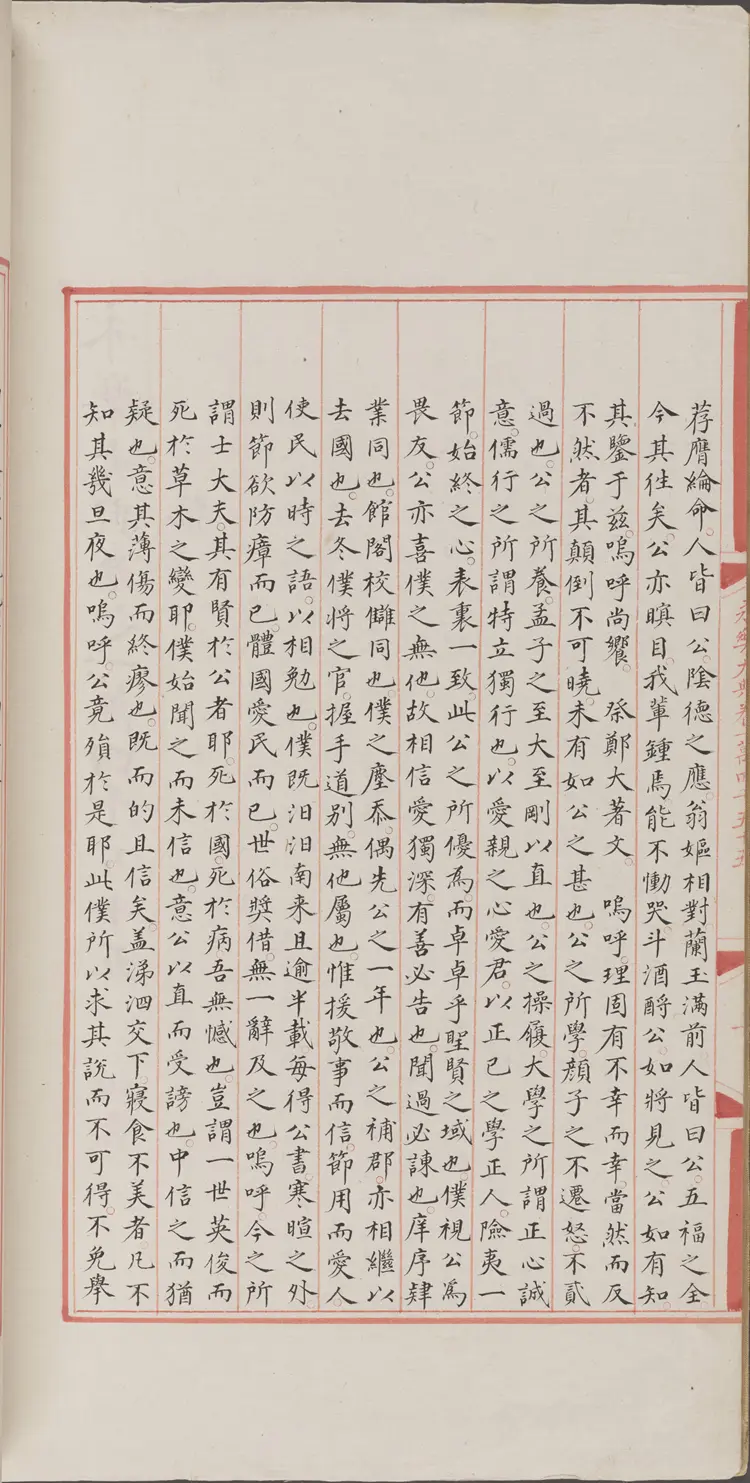 荐膺綸命人皆曰公陰德之應翁嫗相對蘭玉滿前人皆曰公五福之全
今其徃矣公亦瞑目我輩鍾焉能不慟哭斗酒酹公如將見之公如有知
其鑒于兹嗚呼尚饗　祭鄭大著文　嗚呼理固有不幸而幸當然而反
不然者其顛倒不可曉未有如公之甚也公之所學顔子之不遷怒不貳
過也公之所養孟子之至大至剛以直也公之操履大學之所謂正心誠
意儒行之所謂特立獨行也以愛親之心愛君以正已之學正人險夷一
節始終之心表裏一致此公之所優為而卓卓乎聖賢之域也僕視公爲
畏友公亦喜僕之無他故相信愛獨深有善必告也聞過必諫也庠序肄
業同也館閣校讎同也僕之塵忝偶先公之一年也公之補郡亦相繼以
去國也去冬僕將之官握手道别無他屬也惟援敬事而信節用而愛人
使民以時之語以相勉也僕既汨汨南来且逾半載每得公書寒暄之外
則節欲防瘴而已體國愛民而已世俗奬借無一辭及之也嗚呼今之所
謂士大夫其有賢於公者耶死於國死於病吾無憾也豈謂一世英俊而
死於草木之變耶僕始聞之而未信也意公以直而受謗也中信之而猶
疑也意其薄傷而終瘳也既而的且信矣盖涕泗交下寢食不美者凡不
知其幾旦夜也嗚呼公竟殞於是耶此僕所以求其説而不可得不免舉